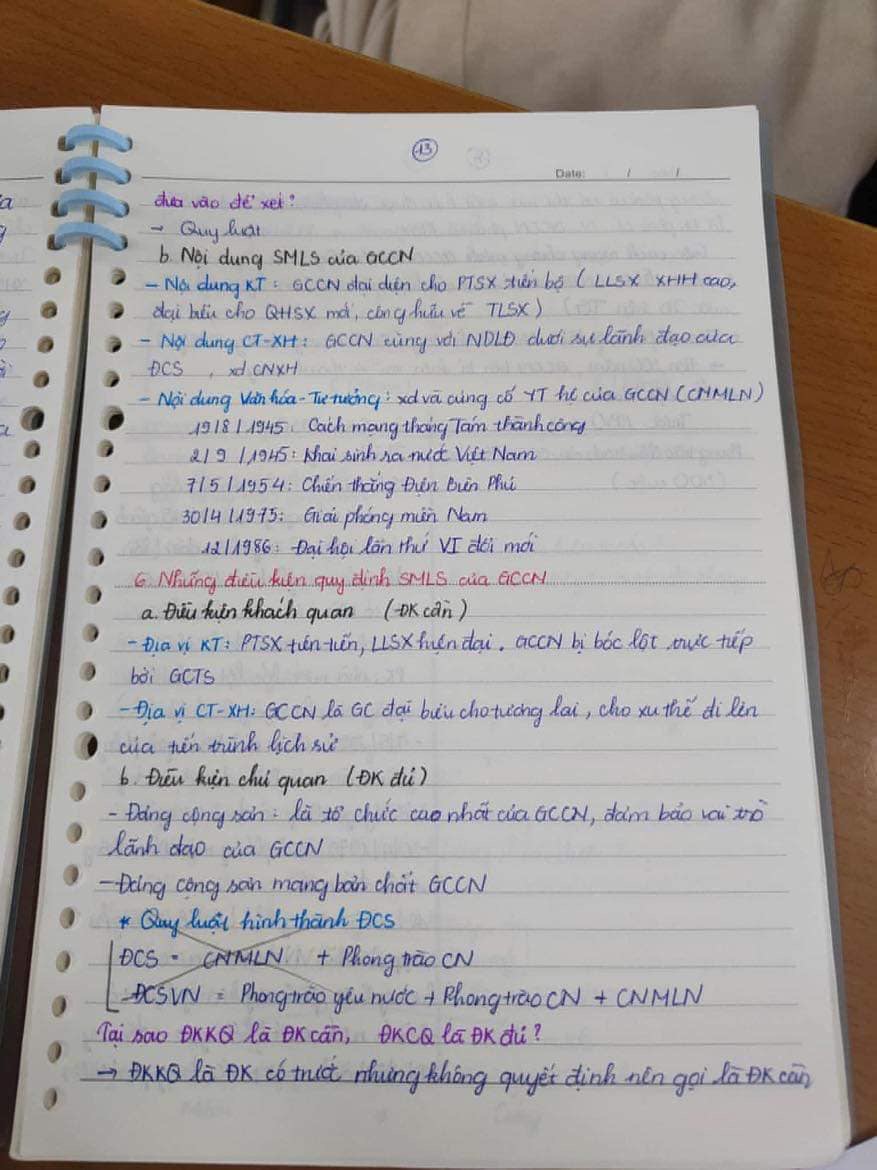 13
Date: / /
dựa vào để xét?
→ Quy luật
b. Nội dung SMLS của GCCN
- Nội dung KT: GCCN đại diện cho PTSX tiến bộ (LLSX XHH cao,
đại biểu cho QHSX mới, công hữu về TLSX)
- Nội dung CT-XH: GCCN cùng với NDLĐ dưới sự lãnh đạo của
ĐCS, xd CNXH
- Nội dung Văn hóa - Tư tưởng: xd và củng cố YT hệ của GCCN (CNMLN)
19/8/1945: Cách mạng tháng Tám thành công
2/9/1945: Khai sinh ra nước Việt Nam
7/5/1954: Chiến thắng Điện Biên Phủ
30/4/1975: Giải phóng miền Nam
12/1986: Đại hội lần thứ VI đổi mới
6. Những điều kiện quy định SMLS của GCCN
a. Điều kiện khách quan (ĐK cần)
- Địa vị KT: PTSX tiên tiến, LLSX hiện đại. GCCN bị bóc lột trực tiếp
bởi GCTS
- Địa vị CT-XH: GCCN là GC đại biểu cho tương lai, cho xu thế đi lên
của tiến trình lịch sử
b. Điều kiện chủ quan (ĐK đủ)
- Đảng cộng sản: là tổ chức cao nhất của GCCN, đảm bảo vai trò
lãnh đạo của GCCN
- Đảng cộng sản mang bản chất GCCN
* Quy luật hình thành ĐCS
ĐCS = CNMLN + Phong trào CN
ĐCSVN = Phong trào yêu nước + Phong trào CN + CNMLN
Tại sao ĐKKQ là ĐK cần, ĐKCQ là ĐK đủ?
→ ĐKKQ là ĐK có trước nhưng không quyết định nên gọi là ĐK cần